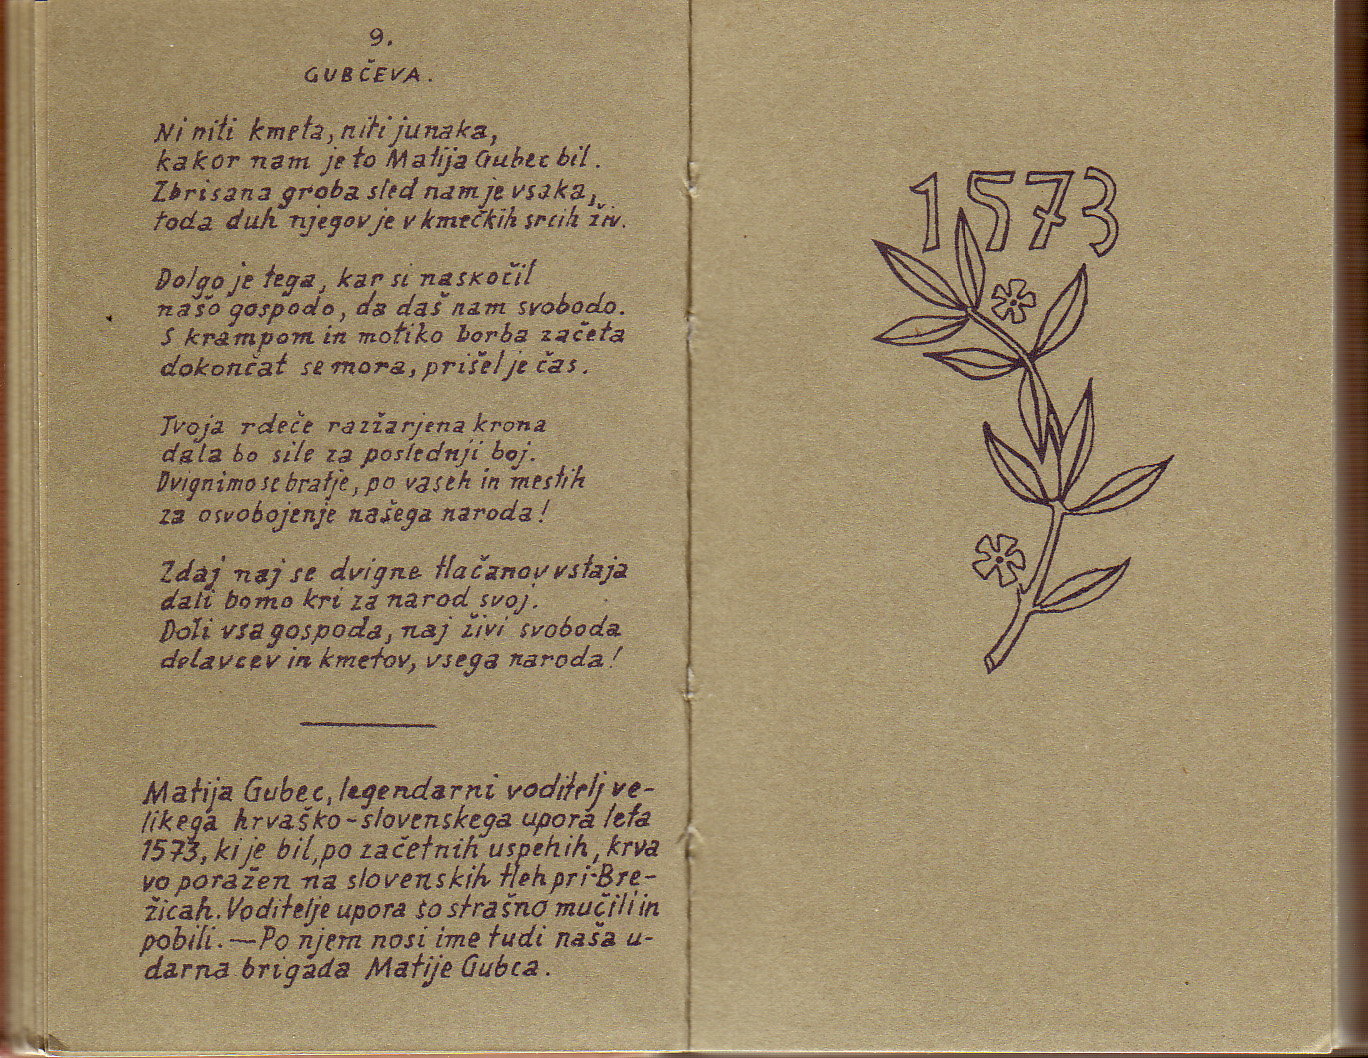 9.
GUBČEVA.
Ni niti kmeta, niti junaka,
kakor nam je to Matija Gubec bil.
Zbrisana groba sled nam je vsaka,
toda duh njegov je v kmečkih srcih živ.
Dolgo je tega, kar si naskočil
našo gospodo, da daš nam svobodo.
S krampom in motiko borba začeta
dokončat se mora, prišel je čas.
Tvoja rdeče razžarjena krona
dala bo sile za poslednji boj.
Dvignimo se bratje, po vaseh in mestih
za osvobojenje našega naroda!
Zdaj naj se dvigne tlačanov vstaja
dali bomo kri za narod svoj.
Doli vsa gospoda, naj živi svoboda
delavcev in kmetov, vsega naroda!
Matija Gubec, legendarni voditelj ve-
likega hrvaško-slovenskega upora leta
1573, ki je bil, po začetnih uspehih, krva
vo poražen na slovenskih tleh pri Bre-
žicah. Voditelje upora so strašno mučili in
pobili. — Po njem nosi ime tudi naša u-
darna brigada Matije Gubca.
1573